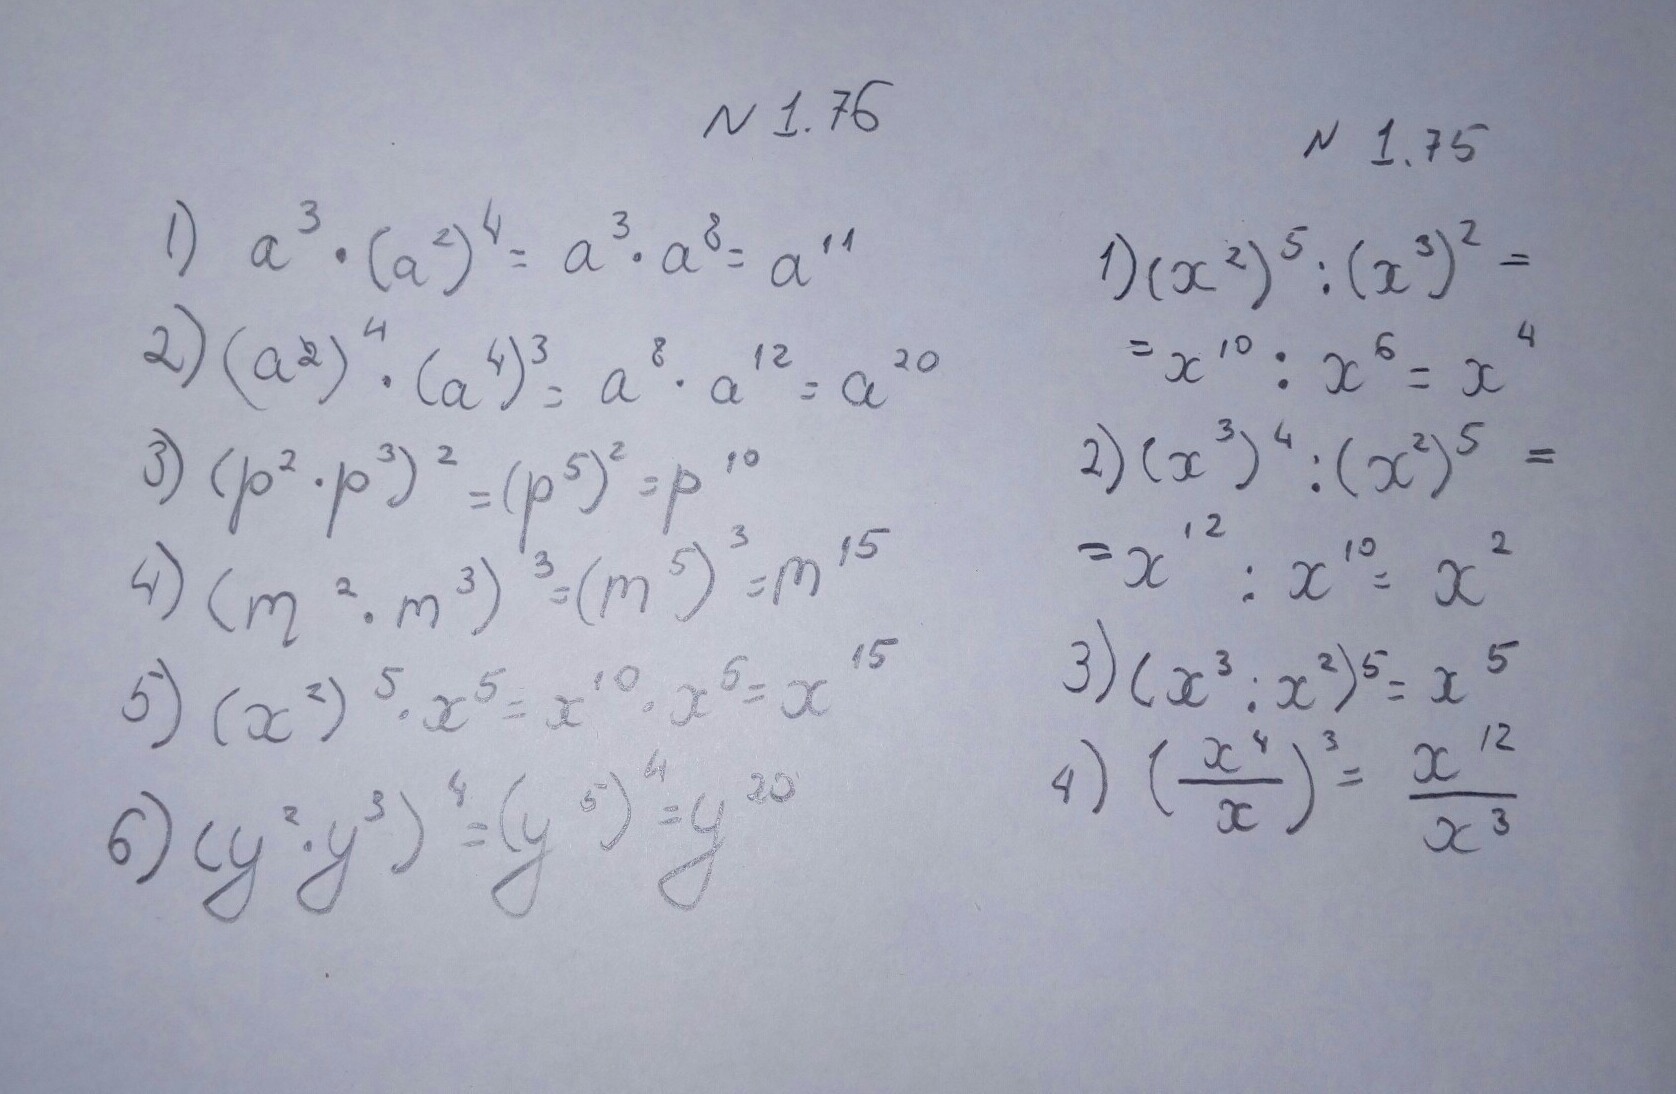 N 1.76
1) a³ · (a²)⁴ = a³ · a⁸ = a¹¹
2) (a²)⁴ · (a⁴)³ = a⁸ · a¹² = a²⁰
3) (p² · p³)² = (p⁵)² = p¹⁰
4) (m² · m³)³ = (m⁵)³ = m¹⁵
5) (x²)⁵ · x⁵ = x¹⁰ · x⁵ = x¹⁵
6) (y² · y³)⁴ = (y⁵)⁴ = y²⁰
N 1.75
1) (x²)⁵ : (x³)² =
= x¹⁰ : x⁶ = x⁴
2) (x³)⁴ : (x²)⁵ =
= x¹² : x¹⁰ = x²
3) (x³ : x²)⁵ = x⁵
4) (x⁴/x)³ = x¹²/x³